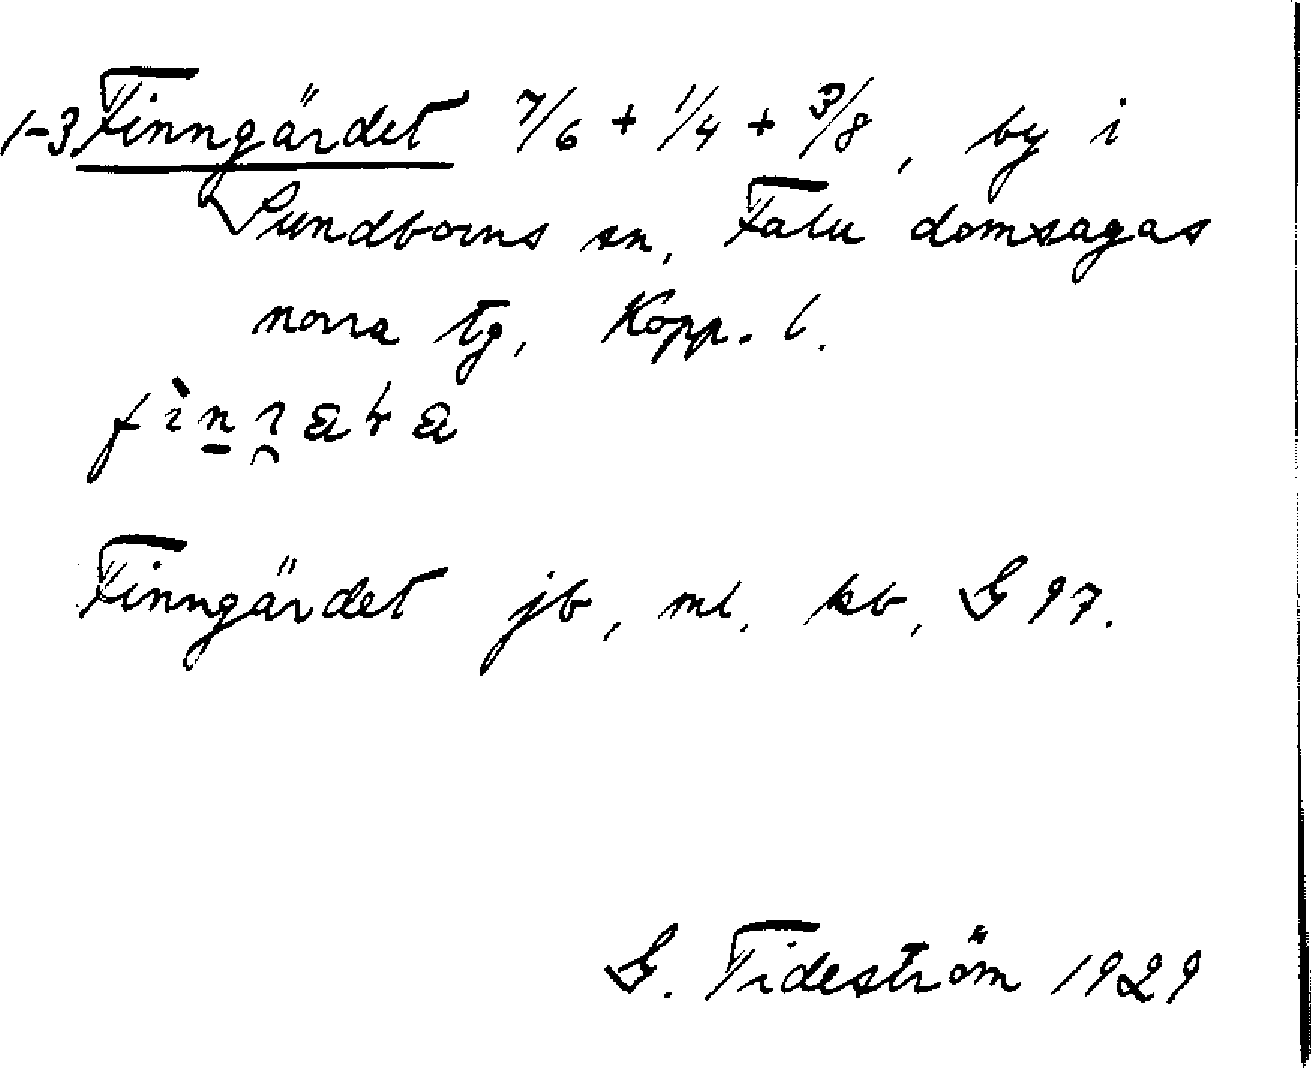 1-3 Finngärdet 7/6 + 1/4 + 3/8, by i
Sundborns sn, Falu domsagas
norra tg, Kopp. l.
Finngärdet jb, ml, kb, G 97.
G. Tideström 1929